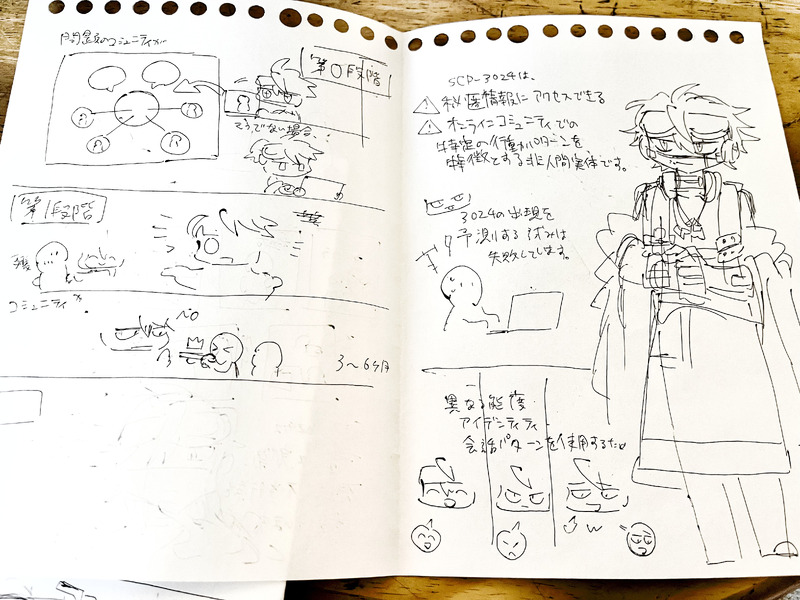 問題のコミュニティが
第0段階
そうでない場合
第1段階
コミュニティ
3〜6ヶ月
SCP-3024は、
秘匿情報にアクセスできる
オンラインコミュニティでの
特定の行動パターンを
特徴とする非人間実体です。
3024の出現を
予測する試みは
失敗してします。
異なる態度
アイデンティティ
会話パターンを使用するため
w